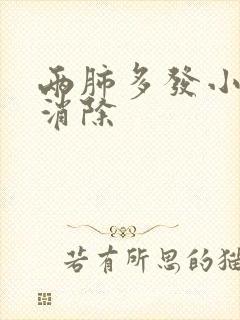 兩肺多發小
消除
若有所思的猫